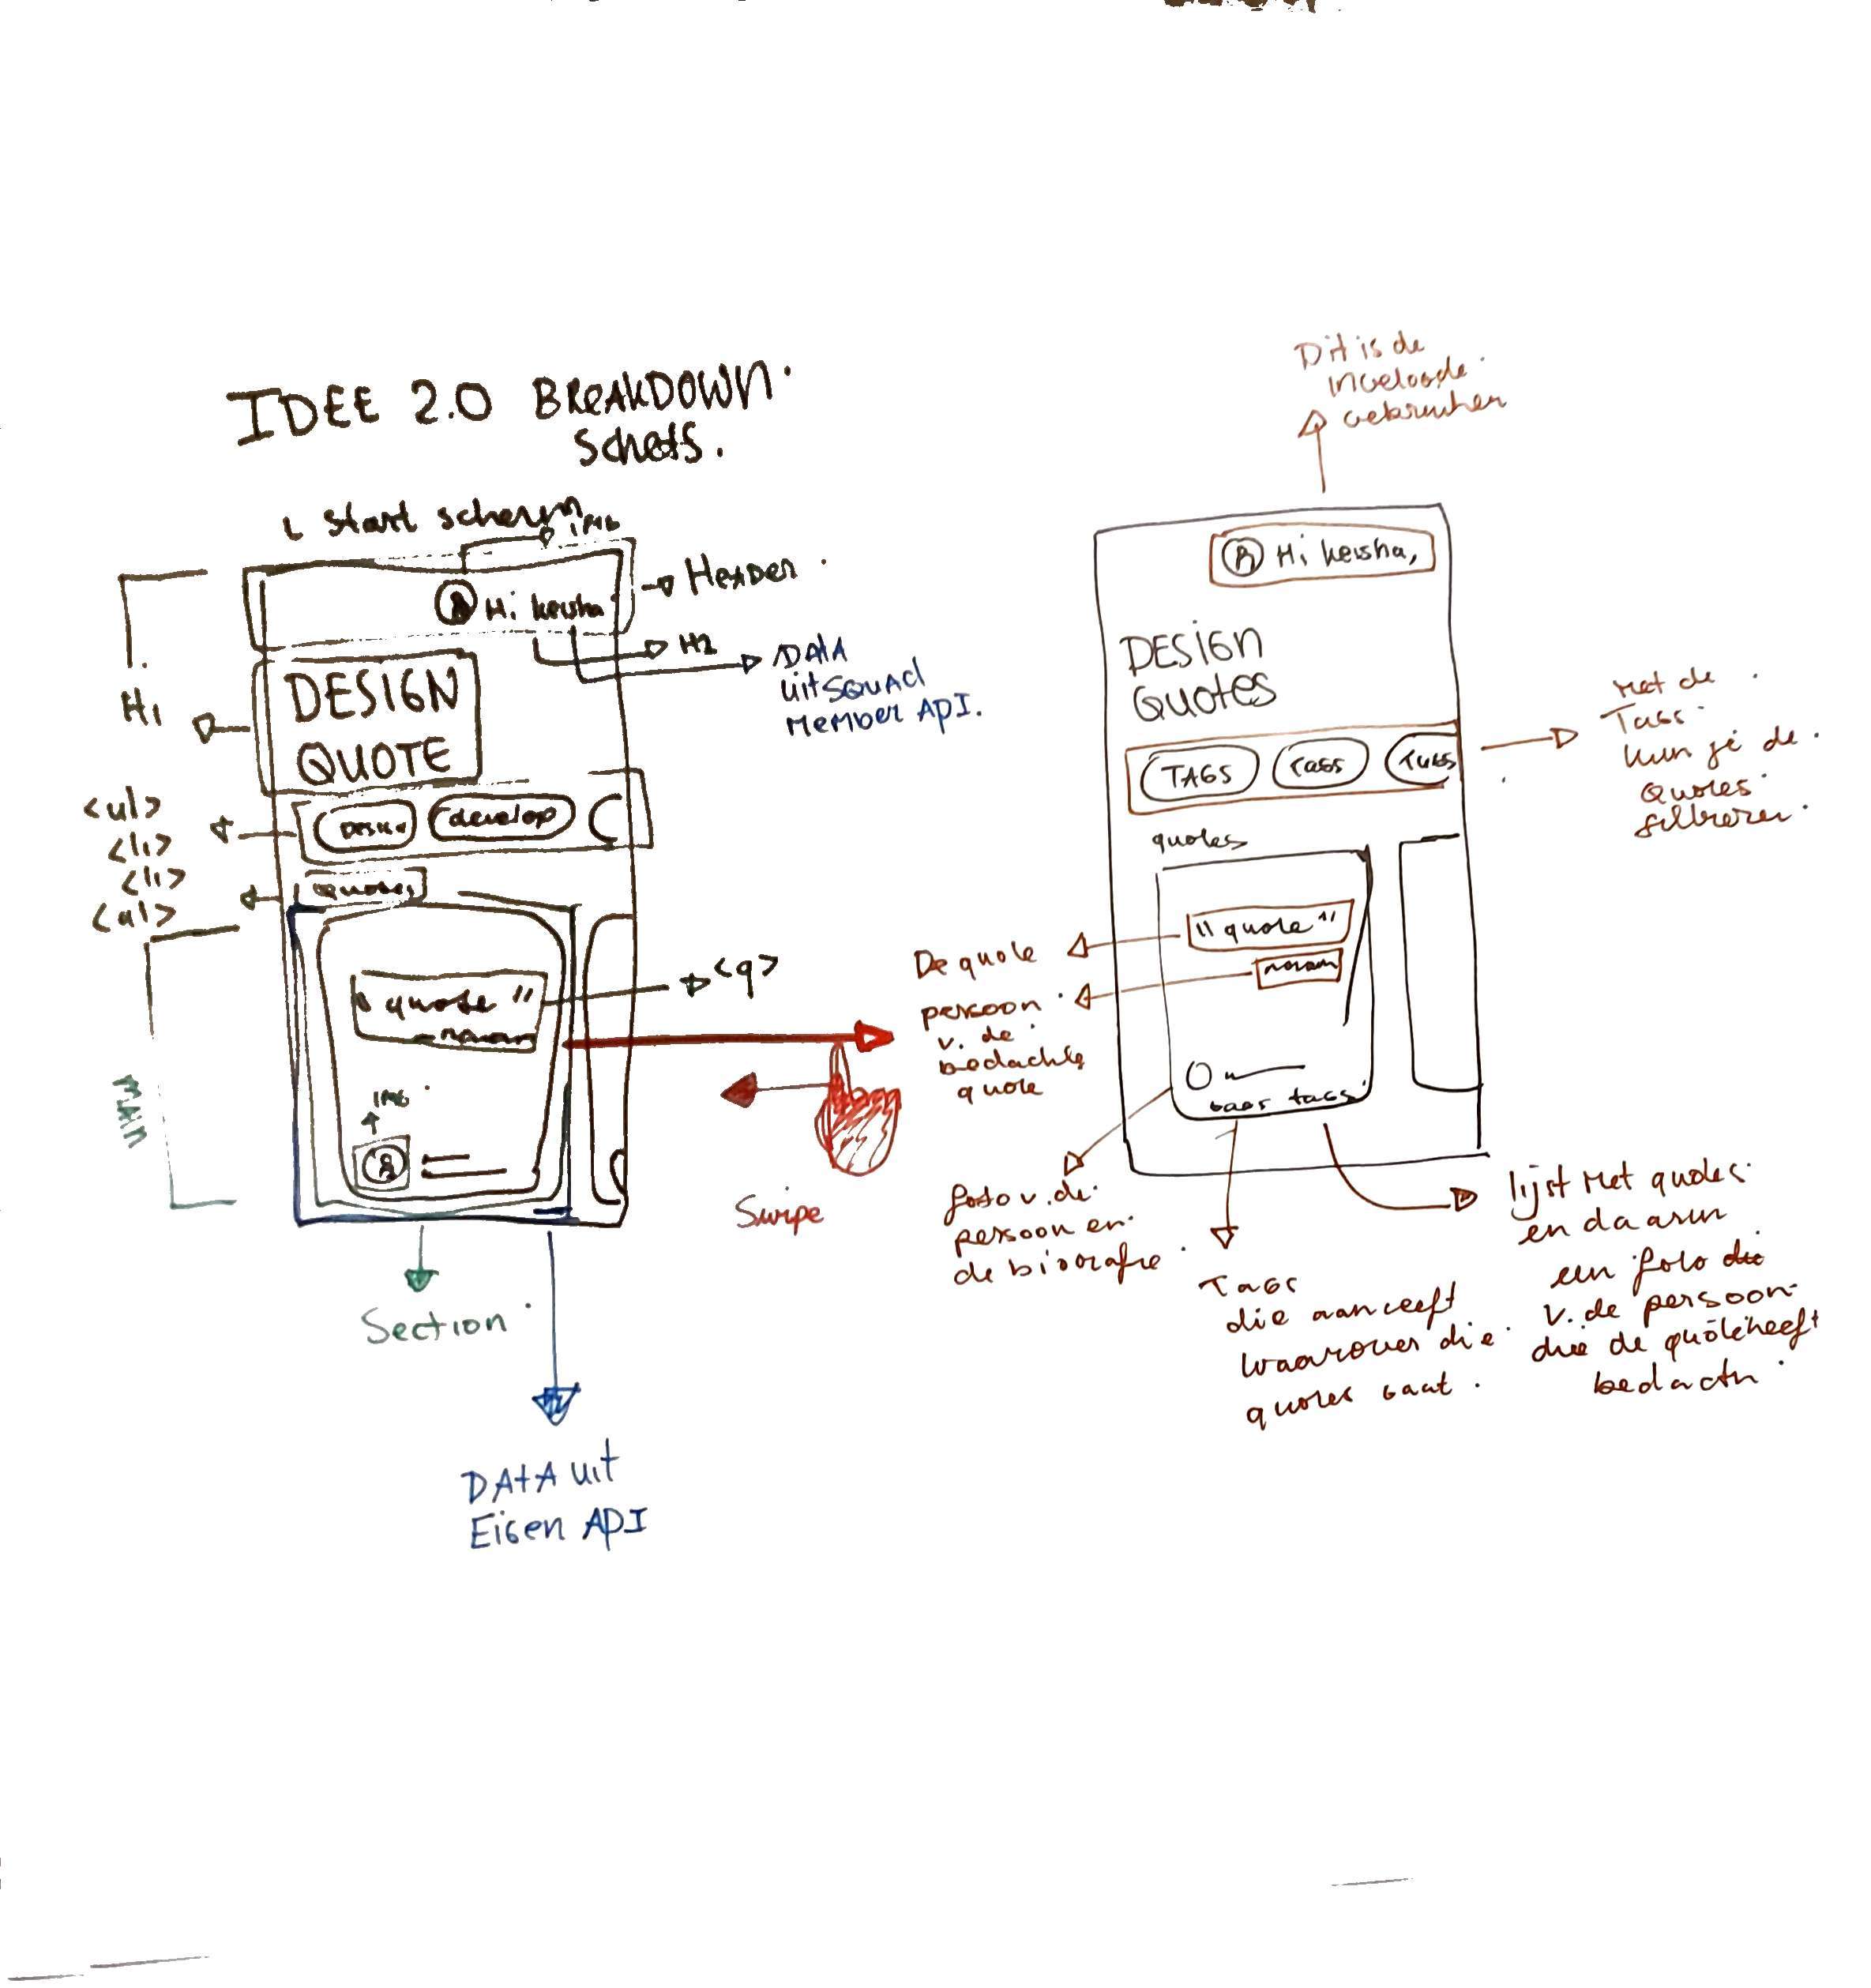 IDEE 2.0 BREAKDOWN.
Schets.
Start scherm
IMG
Hi keisha
Header.
H1
H2
DATA
uit SQUAD
Member API.
DESIGN
QUOTE
<ul>
<li>
<li>
<ul>
Design
develop
Quotes
" quote "
- naam
<q>
IMG
MAIN
Swipe
Section
DATA uit
Eigen API
Dit is de
ingelogde
gebruiker
Hi keisha,
DESIGN
QUOTES
TAGS
TAGS
TAGS
Met de
Tags
kun je de
Quotes
filteren.
quotes
" quote "
naam
tags tags
De quote
persoon
v. de
bedachte
quote
foto v. de
persoon en
de biografie.
Tags
die aangeeft
waarover die
quotes gaat.
lijst met quotes
en daarin
een foto die
v. de persoon
die de quote heeft
bedacht